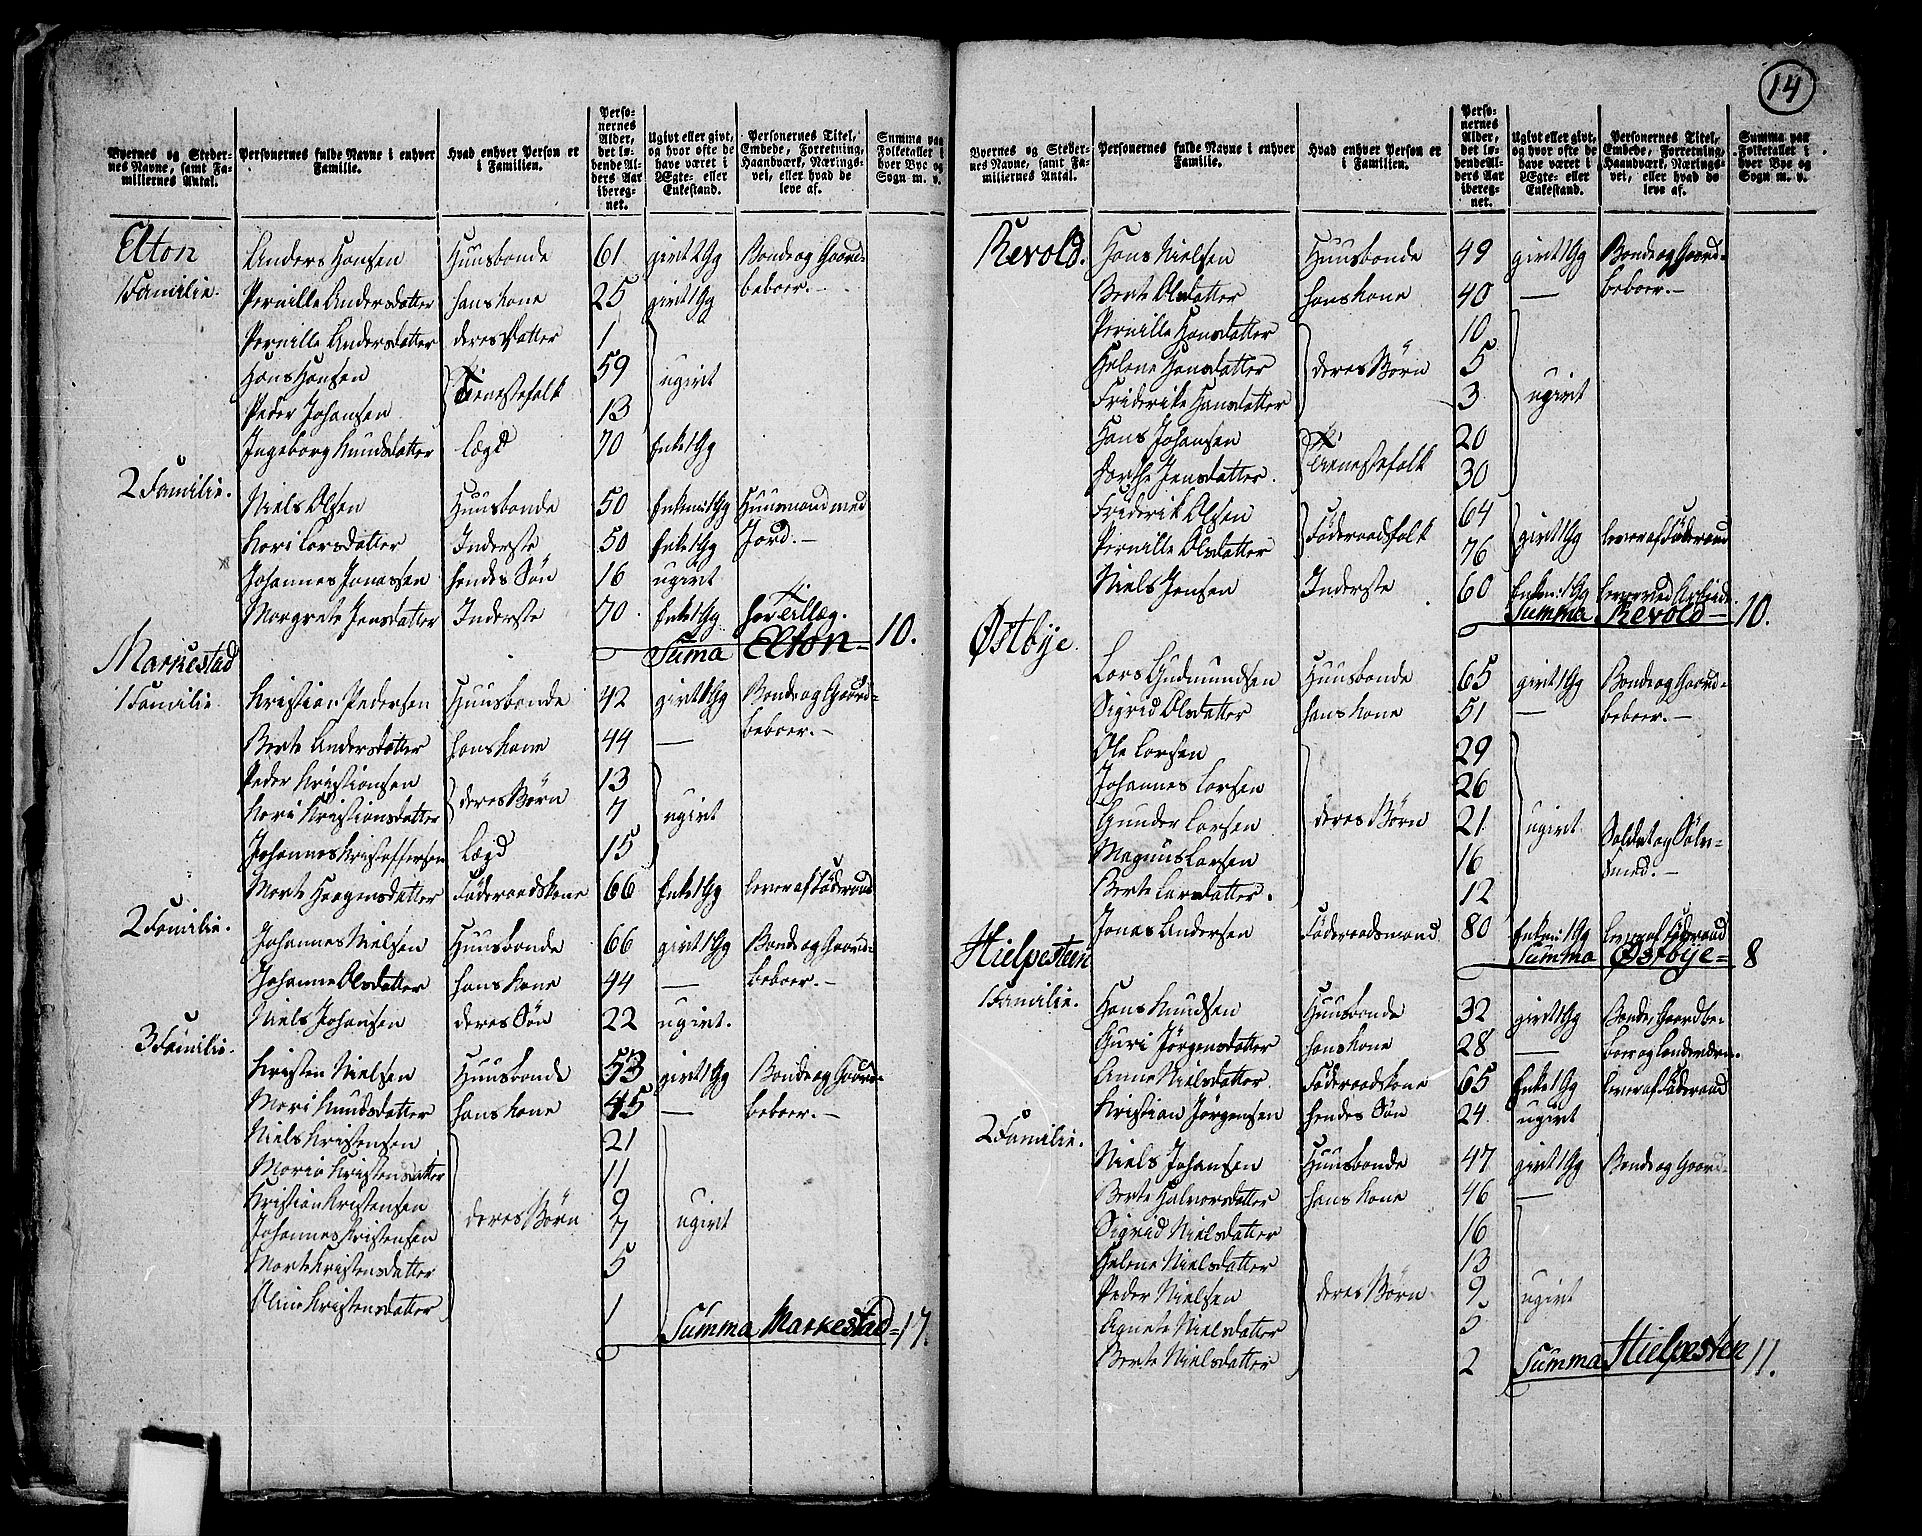 14
Byernes og Steder-
nes Navne, samt Fa-
miliernes Antal.
Personernes fulde Navne i enhver
Familie.
Hvad enhver Person er
i Familien.
Perso-
nernes
Alder,
det lø-
bende Al-
ders Aar
ibereg-
net.
Ugivt eller givt,
og hvor ofte de
have været i
Ægte- eller
Enkestand.
Personernes Titel,
Embede, Forretning,
Haandværk, Nærings-
vei, eller hvad de
leve af.
Summa paa
Folketallet i
hver Bye og
Sogn m. v.
Elton Anders Hansen Huusbonde 61 givt 2 Gg Bonde og Gaard-
1 Familie. Pernille Andersdatter hans Kone 25 givt 1 Gg beboer.
Pernille Andersdatter deres Datter 1
Hans Hansen Tienestefolk 59 ugivt
Peder Johansen 13
Ingeborg Knudsdatter Lægd 70 Enke 1 Gg
2 Familie.
Niels Olsen Huusbonde 50 Enkem: 1 Gg Huusmand med
Kari Larsdatter Inderste 50 Enke 1 Gg Jord.
Johannes Jonassen hendes Søn 16 ugivt
Margrete Jensdatter Inderste 70 Enke 1 Gg har Tillæg.
Suma Elton 10.
Markestad
1 Familie Kristian Pedersen Huusbonde 42 givt 1 Gg Bonde og Gaard-
beboer.
Berte Andersdatter hans Kone 44 —
Peder Kristiansen 13
Kari Kristiansdatter deres Børn 7 ugivt
Johannes Kristoffersen Lægd 15
Marte Haagensdatter Föderaadskone 66 Enke 1 Gg lever af Föderaad
2 Familie.
Johannes Nielsen Huusbonde 66 givt 1 Gg Bonde og Gaard-
Johanne Olsdatter hans Kone 44 — beboer.
Niels Johansen deres Søn 22 ugivt.
3 Familie.
Kristen Nielsen Huusbonde 53 givt 1 Gg Bonde og Gaard-
Mari Knudsdatter hans Kone 45 — beboer.
Niels Kristensen 21
Maria Kristensdatter 11
Kristian Kristensen 9
Johannes Kristensen deres Børn 7 ugivt
Marte Kristensdatter 5
Oline Kristensdatter 1
Summa Markestad 17.
Byernes og Steder-
nes Navne, samt Fa-
miliernes Antal.
Personernes fulde Navne i enhver
Familie.
Hvad enhver Person er
i Familien.
Perso-
nernes
Alder,
det lø-
bende Al-
ders Aar
ibereg-
net.
Ugivt eller givt,
og hvor ofte de
have været i
Ægte- eller
Enkestand.
Personernes Titel,
Embede, Forretning,
Haandværk, Nærings-
vei, eller hvad de
leve af.
Summa paa
Folketallet i
hver Bye og
Sogn m. v.
Revold. Hans Nielsen Huusbonde 49 givt 1 Gg Bonde og Gaard-
Berte Olsdatter hans Kone 40 — beboer.
Pernille Hansdatter 10
Helene Hansdatter deres Børn 5
Friderike Hansdatter 3 ugivt
Hans Johansen 20
Dorthe Jensdatter. Tienestefolk 30
Friderik Olsen 64
Pernille Olsdatter Föderaadsfolk 76 givt 1 Gg lever af Föderaad
Niels Jensen Inderste 60 Enkem: 1 Gg lever ved Arbeide
Summa Revold 10.
Østbye.
Lars Gudmundsen Huusbonde 65 givt 1 Gg Bonde og Gaard-
Sigrid Olsdatter hans Kone 51 — beboer.
Ole Larsen 29
Johannes Larsen 26
Gunder Larsen deres Børn 21 ugivt Soldat og Sölv-
Magnus Larsen 16 smed.
Berte Larsdatter. 12
Jonas Andersen Föderaadsmand 80 Enkem: 1 Gg lever af Föderaad
Summa Østbye 8
Hielpesteen
1 Familie. Hans Knudsen Huusbonde 32 givt 1 Gg Bonde, Gaardbe-
Guri Jörgensdatter hans Kone 28 — boer og
Anne Nielsdatter Föderaadskone 65 Enke 1 Gg lever af Föderaad
Kristian Jörgensen hendes Søn 24 ugivt
2 Familie.
Niels Johansen Huusbonde 47 givt 1 Gg Bonde og Gaard-
Berte Halvorsdatter hans Kone 46 —
Sigrid Nielsdatter 16
Helene Nielsdatter 13
Peder Nielsen deres Børn 9 ugivt
Agnete Nielsdatter 5
Berte Nielsdatter 2
Summa Hielpesten 11.